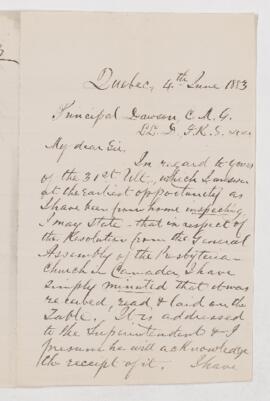 Quebec, 4th June 1883
Principal Dawson C.M.G.
LL.D. F.R.S. &c &c
My dear Sir,
In regard to yours
of the 31st Ult., which I answer
at the earliest opportunity as
I have been from home inspecting,
I may state that in respect of
the Resolution from the General
Assembly of the Presbyterian
Church in Canada, I have
simply minuted that it was
received, read & laid on the
Table. It is addressed
to the Superintendent & I
presume he will acknowledge
the receipt of it. I have